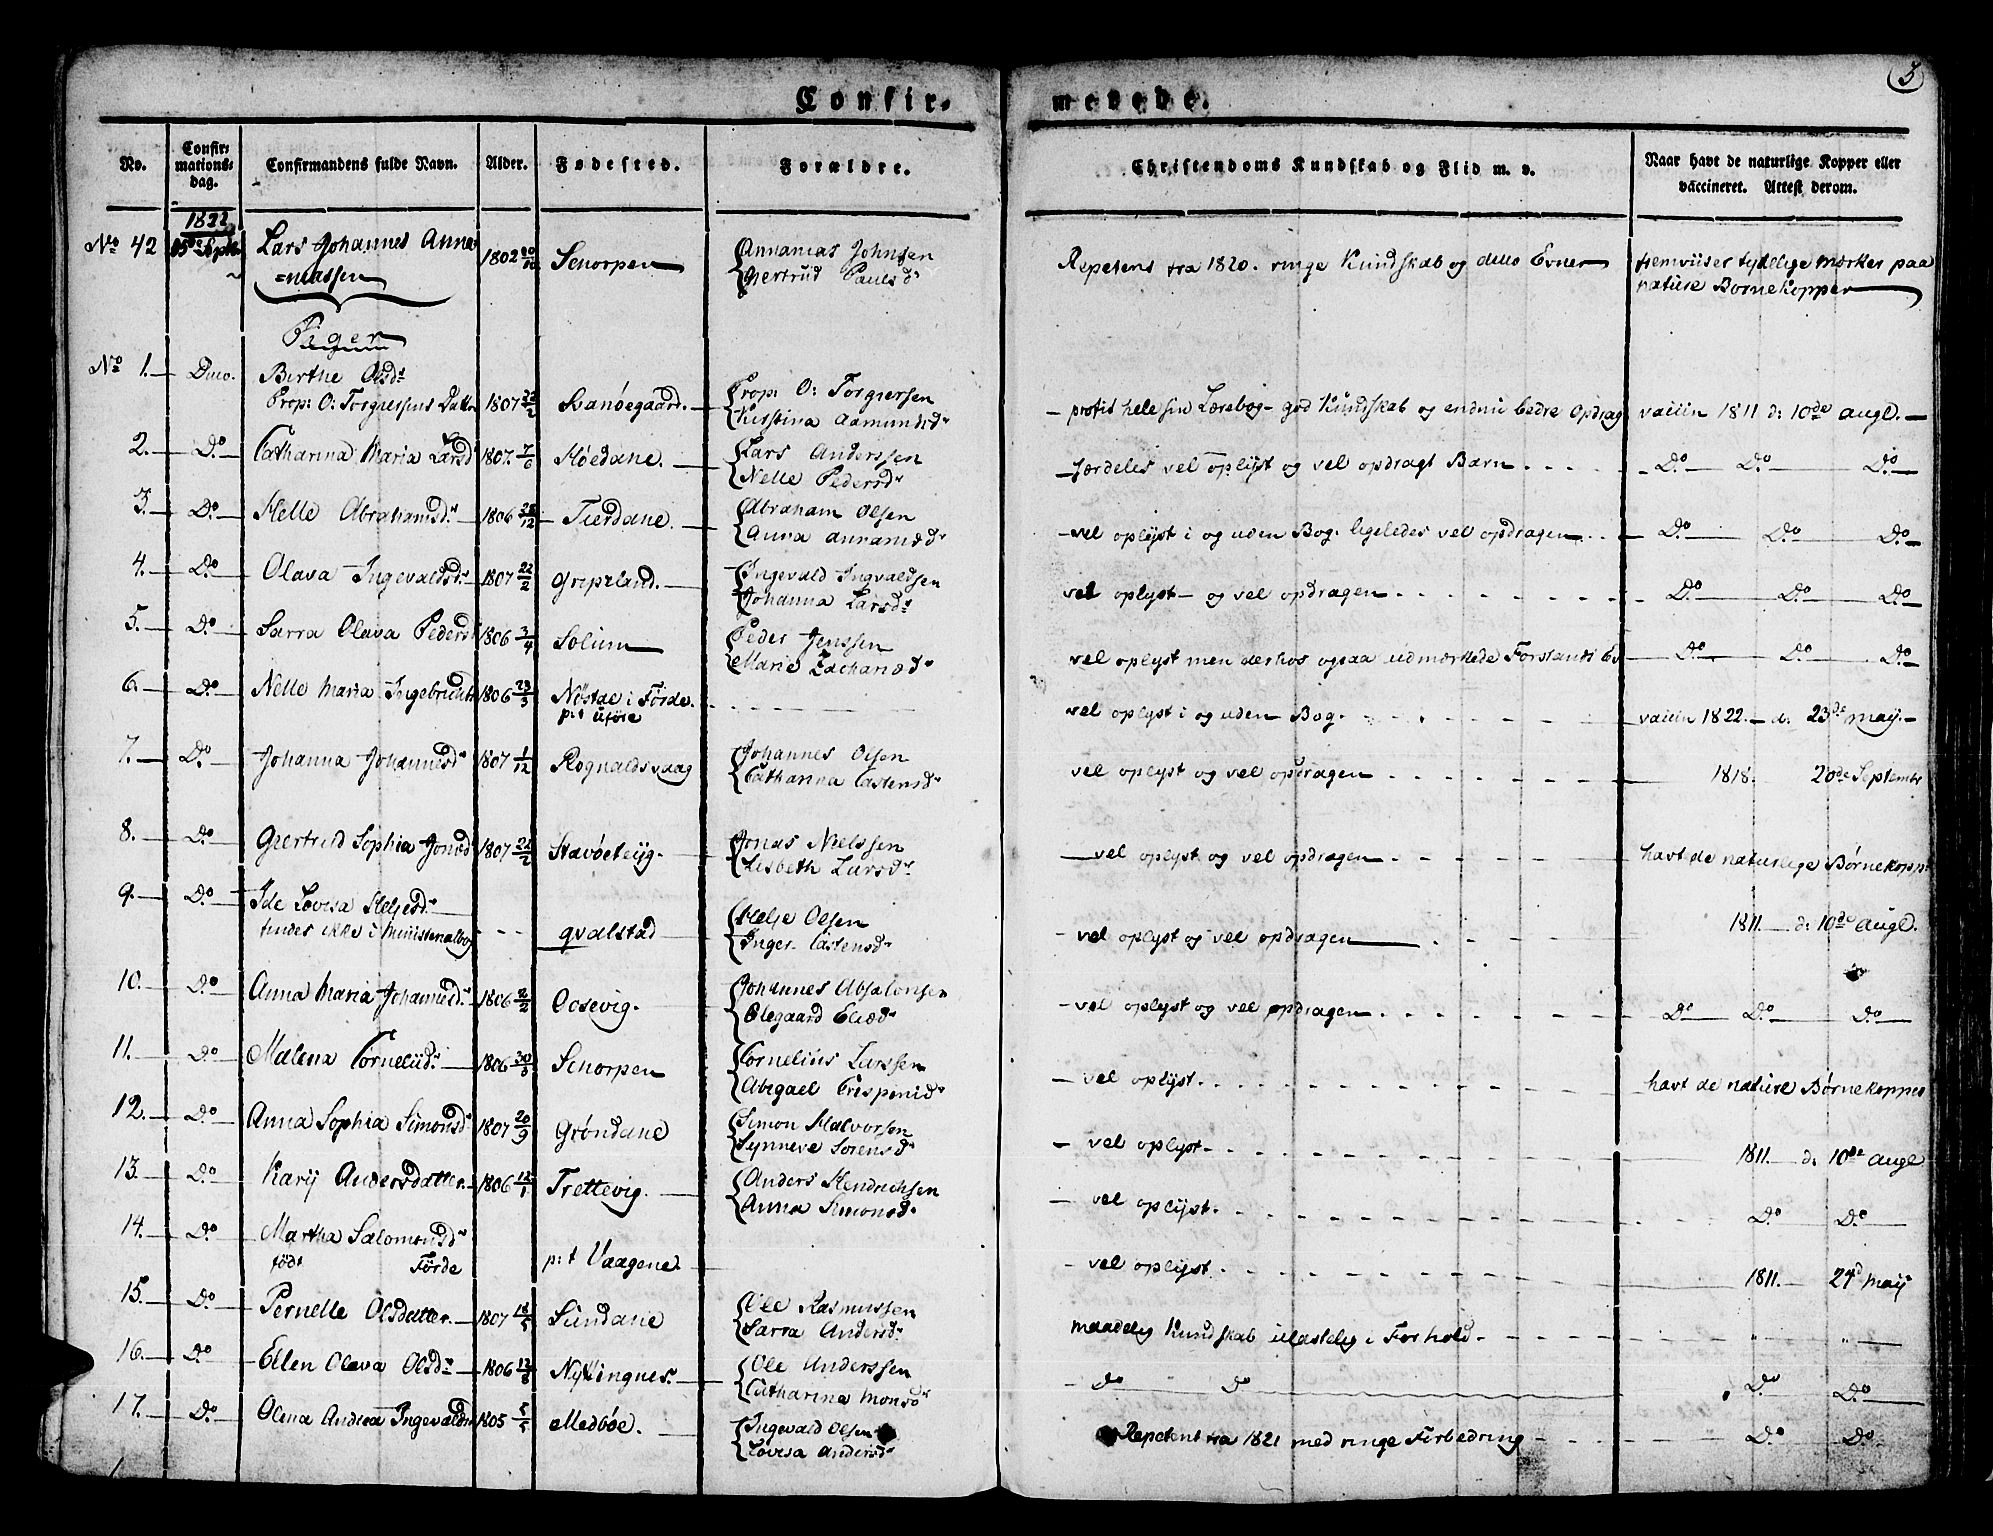 3
Confir-
merede.
No.
Confir-
mations-
dag.
Confirmandens fulde Navn.
Alder.
Fødested.
Forældre.
Christendoms Kundskab og Flid m. v.
Naar havt de naturlige Kopper eller
vaccineret. Attest derom.
1822
No 42 Lars Johannes Anna
=niassen 1802 Senorpen Annanias Johnsen
Gertrud Paulsd. Repetens fra 1820. ringe Kundskab og dito Evner fremviiser tydelige mærker paa
nature Børnekopper
Piger
No 1. Dito. Birthe Olsd.
Prop: O: Torgiersens Datter 1807 22/2 Svanøegaard. Prop: O: Torgiersen
Kirstina Aamundsd. hele sin Lærebog - god Kundskab og endnu bedre Opdrag vaccin 1811 d: 10de Augl.
2. Do Catharina Maria Larsd 1807. 7/6 Høedane. Lars Anderssen
Nelle Pedersd. særdeles vel oplyst og vel opdragt Barn Do Do Do
3. Do Helle Abrahamsd. 1806 /12 Tierdane. Abraham Olsen
Anna vel oplyst i og uden Bog. ligeledes vel opdragen Do Do Do
4. Do Olava Ingevaldsd. 1807 22/2 Grepeland. Ingevald Ingvaldsen
Johanna Larsd. vel oplyst - og vel opdragen Do Do Do
5. Do Sarra Olava Peders 1806 3/4 Solium Peder Jenssen
Marie Zachariæd. vel oplyst men derhos ogsaa udmærkede Forstands Ev Do Do Do
6. Do Nelle Maria Ingebrichts 1806 23/3 Nøstde i Førde.
p: t uføre vel oplyst i og uden Bog. vaccin 1822. d: 23de Maij.
7. Do Johanna Johannesd. 1807 1/12 Rognaldsvaag Johannes Olsen
Catharina Castensd. vel oplyst og vel opdragen 1818. 20de Septembr
8. Do Giertrud Sophia Jonæd 1807 22/2 Stavøeteijg. Jonas Nielssen
Lisbeth Larsd. vel oplyst og vel opdragen havt de naturlige Børnekopp
9. Do Ide Lovisa Heljesd.
findes ikke i Ministerialbog Qvalstad Helje Olsen
Inger Castensd. vel oplyst og vel opdragen 1811. d: 10de Augl.
10. Do Anna Maria Johannesd. 1806 2/2 Ocsevig. Johannes Absalonsen
Olegaard Eliæd. vel oplyst og vel opdragen Do Do Do
11. Do Malena Corneliid. 1806 30/3 Senorpen Cornelius Larssen
Abigael Crispinid. vel oplyst. havt de nature Børnekopper
12. Do Anna Sophia Simonsd. 1807 20/9 Grøndane Simon Halvorsen
Synneve Sørensd. vel oplyst. 1811. d: 10de Augl
13. Do Karij Andersdatter. 1806 12/1 Trettevig. Anders Hendrichsen
Anna Simonsd. vel oplyst. Do Do
14. Do Martha Salomonsd.
född Førde p: t Vaagene. vel oplyst. 1811. 24d Maij
15. Do Pernelle Olsdatter. 1807 18/5 Sundane Ole Rasmussen
Sarra Andersd. maadelig Kundskab ulastelig i Forhold.
16. Do Ellen Olava Olsd. 1806 13/8 Nyttingnes. Ole Anderssen
Catharina Monsd. do do Do Do
17. Do Olena Andrea Ingevaldsd 1805 5/5 Medbøe. Ingevald Olsen
Lovisa Andersd. Repetent fra 1821 med ringe Forbedring Do Do